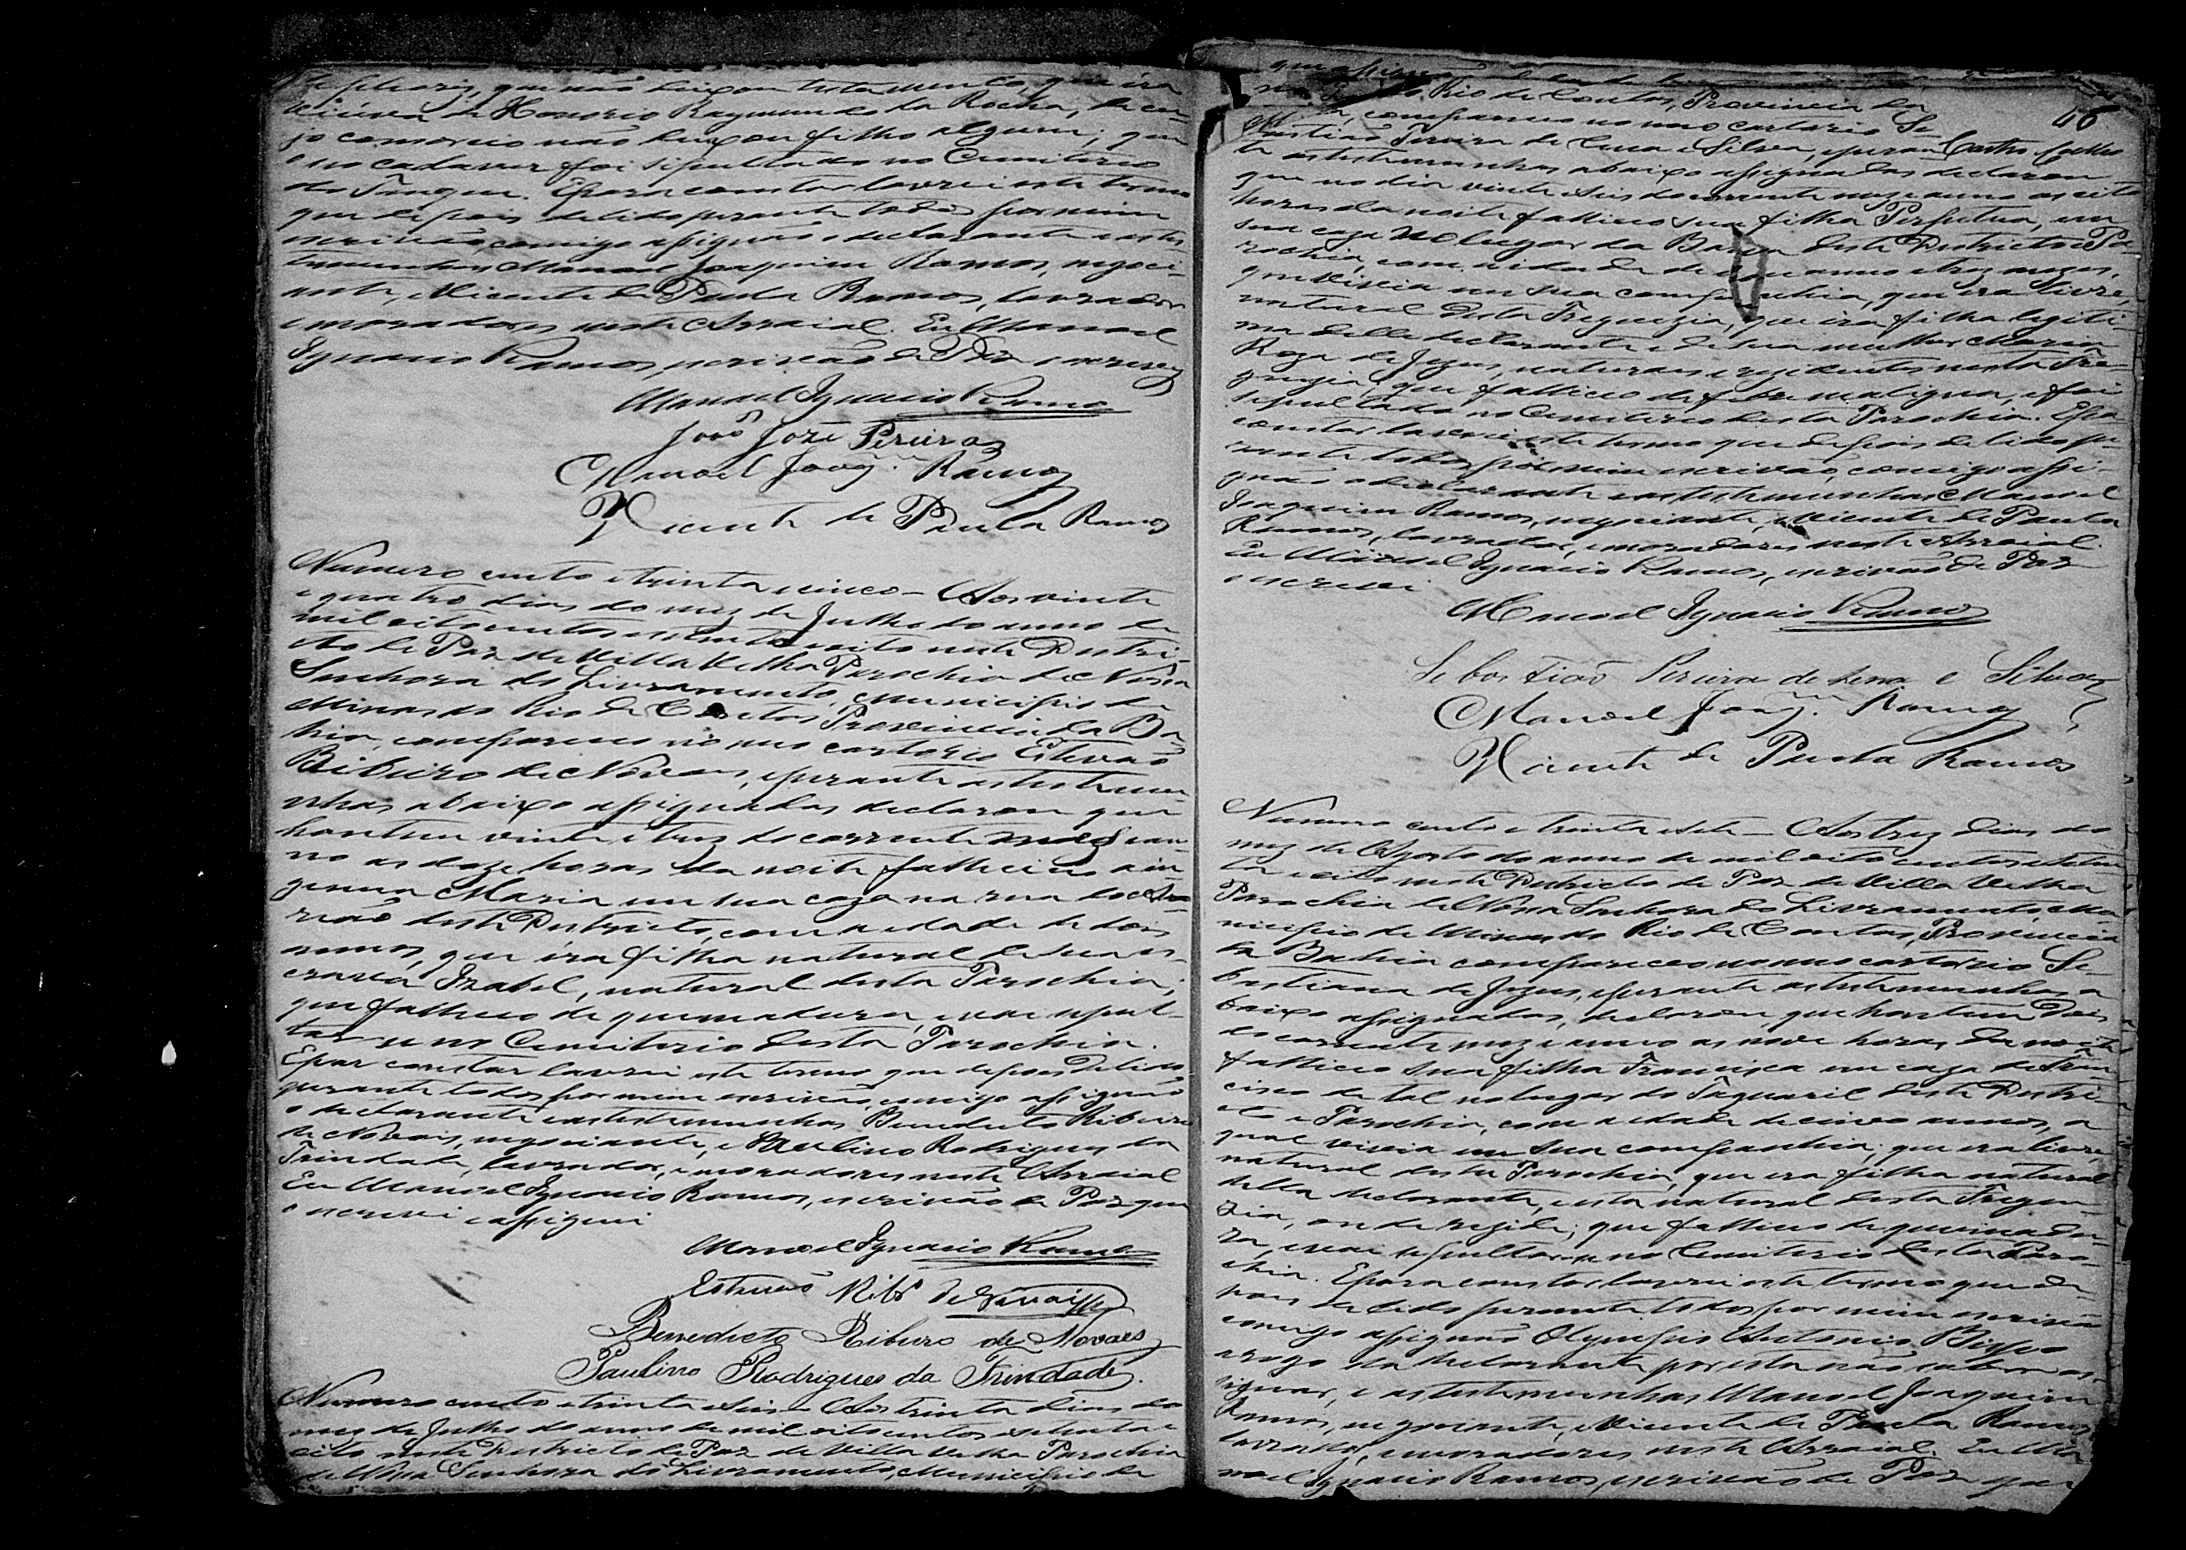 que não deixou testamento, que éra
viúva de Honorio Raymundo da Rocha, de cu-
jo comorcio não deixou filho algum; que
o seo cadaver foi sepultado no Cemiterio
do Tanque. E para constar lavrei este termo
que depois de lido perante todos por mim
escrivão, comigo assignão o declarante e as tes
temunhas Manoel Joaquim Ramos, negoci-
ante, e Vicente de Paula Ramos, lavrador
e moradores neste Arraial. Eu Manoel
Ignacio Ramos, escrivão de Paz o escrevy
Manoel Ignacio Ramos
João Joze Pereira
Manoel Joaqm. Ramos
Vicente de Paula Ramos
Numero cento e trinta e cinco - Aos vinte
e quatro dias do mez de Julho do anno de
mil oito centos e setenta e oito neste Destri-
cto de Paz de Villa Velha Parochia de Nossa
Senhora do Livramento, Municipio de
Minas do Rio de Contas Provincia da Ba
hia, compareceo no meo cartorio Estevão
Ribeiro de Novaes, e perante as testemu-
nhas abaixo assignadas declarou que
hontem vinte e trez do corrente mez e an-
no as doze horas da noite falleceu a in
genua Maria em sua caza na rua do
deste Destricto, com a edade de dois
annos, que éra filha natural de sua es-
crava Izabel, natural desta Parochia,
que falleceo de queimadura, e vai sepul-
tar-se no Cemiterio desta Parochia.
E par constar lavrei este termo que depois de lido
perante todos por mim escrivão, comigo assignão
o declarante e as testemunhas Benedicto Ribeiro
de Novais, negociante, e Paulino Rodrigues da
Trindade, lavrador, e moradores neste Arraial
Eu Manoel Ignacio Ramos, escrivão de Paz que
o escrevi e assignei
Manoel Ignacio Ramos
Estevão Ribo. de Novais
Benedicto Ribeiro de Novaes
Paulino Rodrigues da Trindade.
Numero cento e trinta e seis - Aos trinta dias do
mez de Julho do anno de mil oito centos e setenta e
oito neste Destricto de Paz de Villa Velha Parochia
de Nossa Senhora do Livramento, Municipio de
46
Rio de Contas, Provincia da
compareceo no meo cartorio Se-
bastião Pereira de Cena e Silva, e peran
te as testemunhas abaixo assignadas declarou
que no dia vinte e seis do corrente mez e anno as oito
horas da noite falleceo sua filha Perpetua, em
sua caza no lugar da deste Destricto e Pa-
rochia, com a idade de anno e trez mezes,
que vivia em sua companhia, que era livre,
natural desta Freguezia, que éra filha legiti-
ma delle declarante e de sua mulher Maria
Roza de Jezus, naturaes e rezidentes nesta Fre-
guezia, que falleceo de febre maligna, e foi
sepultada no Cemiterio desta Parochia. E pa
constar lavrei este termo que depois de lido pe-
rante todos por mim escrivão, comigo assi-
gnão o declarante e as testemunhas Manoel
Joaquim Ramos, negociante, e Vicente de Paula
Ramos, lavrador, e moradores neste Arraial.
Eu Manoel Ignacio Ramos, escrivão de Paz
o escrevi
Manoel Ignacio Ramos
Sebastião Pereira de Sena e Silva
Manoel Joaqm. Ramos
Vicente de Paula Ramos
Numero cento e trinta e sete - Aos trez dias do
mez de Agosto do anno de mil oito centos e seten
ta e oito neste Destricto de Paz de Villa Velha
Parochia de Nossa Senhora do Livramento, Mu
nicipio de Minas do Rio de Contas, Provincia
da Bahia compareceo no meo cartorio Se-
bastiana de Jezus, e perante as testemunhas a
baixo assignadas, declarou que hontem dois
do corrente mez e anno as nove horas da noite
falleceo sua filha Francisca em caza de Fran-
cisco de tal no lugar do Taquaril deste Destri-
cto e Parochia, com a idade de cinco annos, a
qual vivia em sua companhia; que era livre,
natural desta Parochia, que era filha natural
della declarante, e esta natural desta Fregue-
zia, onde rezide; que falleceo de queimadu-
ra, e vai sepultar-se no Cemiterio desta Paro-
chia. E para constar lavrei este termo que de
pois de lido perante todos por mim escrivão
comigo assignão Olympio Antonio Bispo
a rogo da declarante por esta não saber as-
signar, e as testemunhas Manoel Joaquim
Ramos, negociante, e Vicente de Paula Ramos
lavrador, e moradores neste Arraial. Eu Ma
noel Ignacio Ramos, escrivão de Paz que